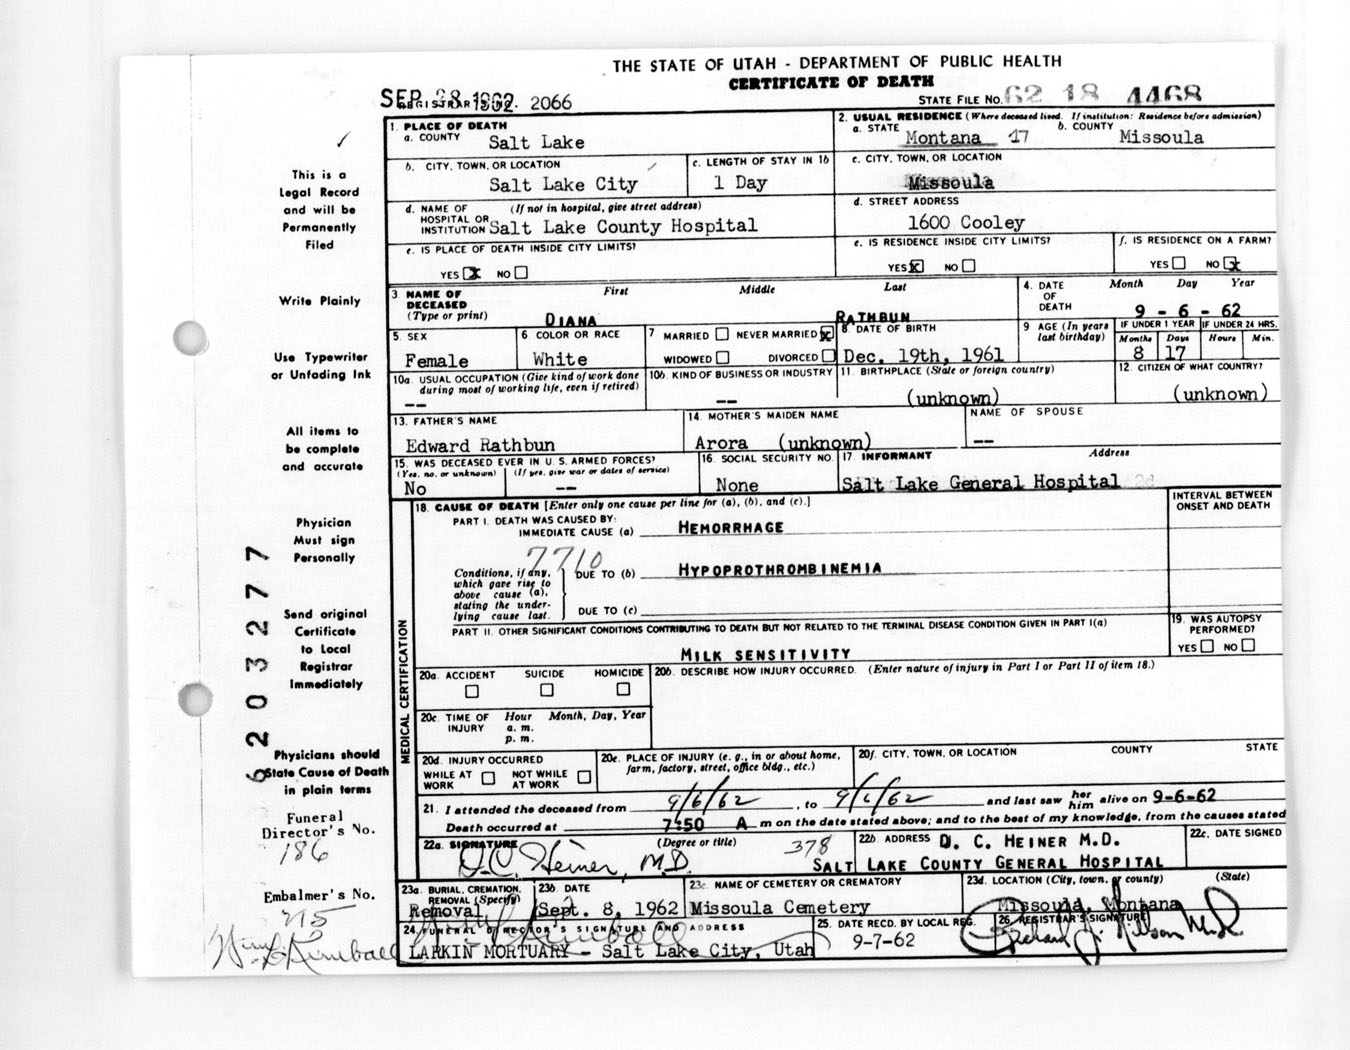 THE STATE OF UTAH - DEPARTMENT OF PUBLIC HEALTH
CERTIFICATE OF DEATH
SEP 28 1962
REGISTRAR'S NO. 2066
STATE FILE NO. 62 18 4468
This is a
Legal Record
and will be
Permanently
Filed
Write Plainly
Use Typewriter
or Unfading Ink
All items to
be complete
and accurate
Physician
Must sign
Personally
Send original
Certificate
to Local
Registrar
Immediately
Physicians should
State Cause of Death
in plain terms
Funeral
Director's No.
186
Embalmer's No.
715
Wm. Kimball
6203277
1. PLACE OF DEATH
a. COUNTY Salt Lake
2. USUAL RESIDENCE (Where deceased lived. If institution: Residence before admission)
a. STATE Montana 17 b. COUNTY Missoula
b. CITY, TOWN, OR LOCATION
Salt Lake City
c. LENGTH OF STAY IN 1b
1 Day
c. CITY, TOWN, OR LOCATION
Missoula
d. NAME OF (If not in hospital, give street address)
HOSPITAL OR
INSTITUTION Salt Lake County Hospital
d. STREET ADDRESS
1600 Cooley
e. IS PLACE OF DEATH INSIDE CITY LIMITS?
YES X NO
e. IS RESIDENCE INSIDE CITY LIMITS?
YES X NO
f. IS RESIDENCE ON A FARM?
YES NO X
3. NAME OF DECEASED (Type or print) First Middle Last
DIANA RATHBUN
4. DATE OF DEATH Month Day Year
9 - 6 - 62
5. SEX
Female
6 COLOR OR RACE
White
7 MARRIED NEVER MARRIED X
WIDOWED DIVORCED
8 DATE OF BIRTH
Dec. 19th, 1961
9 AGE (In years last birthday)
IF UNDER 1 YEAR IF UNDER 24 HRS.
Months Days Hours Min.
8 17
10a. USUAL OCCUPATION (Give kind of work done
during most of working life, even if retired)
--
10b. KIND OF BUSINESS OR INDUSTRY
--
11. BIRTHPLACE (State or foreign country)
(unknown)
12. CITIZEN OF WHAT COUNTRY?
(unknown)
13. FATHER'S NAME
Edward Rathbun
14. MOTHER'S MAIDEN NAME
Arora (unknown)
NAME OF SPOUSE
--
15. WAS DECEASED EVER IN U. S. ARMED FORCES?
(Yes, no, or unknown) (If yes, give war or dates of service)
No --
16. SOCIAL SECURITY NO.
None
17. INFORMANT Address
Salt Lake General Hospital
18. CAUSE OF DEATH [Enter only one cause per line for (a), (b), and (c).]
INTERVAL BETWEEN
ONSET AND DEATH
PART I. DEATH WAS CAUSED BY:
IMMEDIATE CAUSE (a) HEMORRHAGE
7710
Conditions, if any,
which gave rise to
above cause (a),
stating the under-
lying cause last.
DUE TO (b) HYPOPROTHROMBINEMIA
DUE TO (c)
PART II. OTHER SIGNIFICANT CONDITIONS CONTRIBUTING TO DEATH BUT NOT RELATED TO THE TERMINAL DISEASE CONDITION GIVEN IN PART I(a)
MILK SENSITIVITY
19. WAS AUTOPSY
PERFORMED?
YES NO
MEDICAL CERTIFICATION
20a. ACCIDENT SUICIDE HOMICIDE
20b. DESCRIBE HOW INJURY OCCURRED. (Enter nature of injury in Part I or Part II of item 18.)
20c. TIME OF INJURY Hour Month, Day, Year
a. m.
p. m.
20d. INJURY OCCURRED
WHILE AT WORK NOT WHILE AT WORK
20e. PLACE OF INJURY (e. g., in or about home,
farm, factory, street, office bldg., etc.)
20f. CITY, TOWN, OR LOCATION COUNTY STATE
21. I attended the deceased from 9/6/62, to 9/6/62 and last saw her him alive on 9-6-62
Death occurred at 7:50 A m on the date stated above; and to the best of my knowledge, from the causes stated
22a. SIGNATURE (Degree or title)
D.C. Heiner, M.D.
378
22b. ADDRESS D. C. HEINER M.D.
SALT LAKE COUNTY GENERAL HOSPITAL
22c. DATE SIGNED
23a. BURIAL, CREMATION,
REMOVAL (Specify)
Removal
23b. DATE
Sept. 8, 1962
23c. NAME OF CEMETERY OR CREMATORY
Missoula Cemetery
23d. LOCATION (City, town, or county) (State)
Missoula, Montana
24. FUNERAL DIRECTOR'S SIGNATURE AND ADDRESS
LARKIN MORTUARY - Salt Lake City, Utah
25. DATE RECD. BY LOCAL REG.
9-7-62
26. REGISTRAR'S SIGNATURE